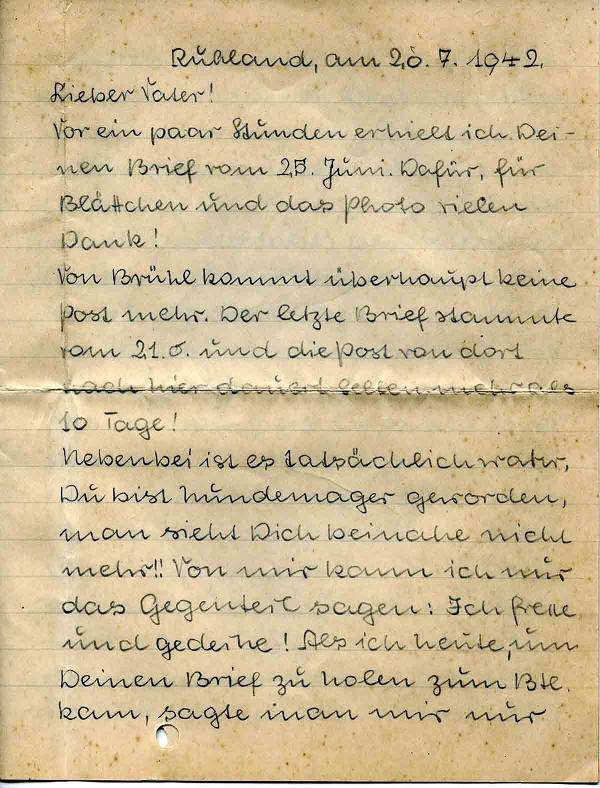 Rußland, am 20. 7. 1942.
Lieber Vater!
Vor ein paar Stunden erhielt ich Dei-
nen Brief vom 25. Juni. Dafür, für
Blättchen und das Photo vielen
Dank!
Von Brühl kommt überhaupt keine
Post mehr. Der letzte Brief stammte
vom 21.6. und die Post von dort
nach hier dauert selten mehr als
10 Tage!
Nebenbei ist es tatsächlich wahr,
Du bist hundemager geworden,
man sieht Dich beinahe nicht
mehr!! Von mir kann ich nur
das Gegenteil sagen: Ich freue
und gedeihe! Als ich heute, um
Deinen Brief zu holen zum Btl.
kam, sagte man mir nur